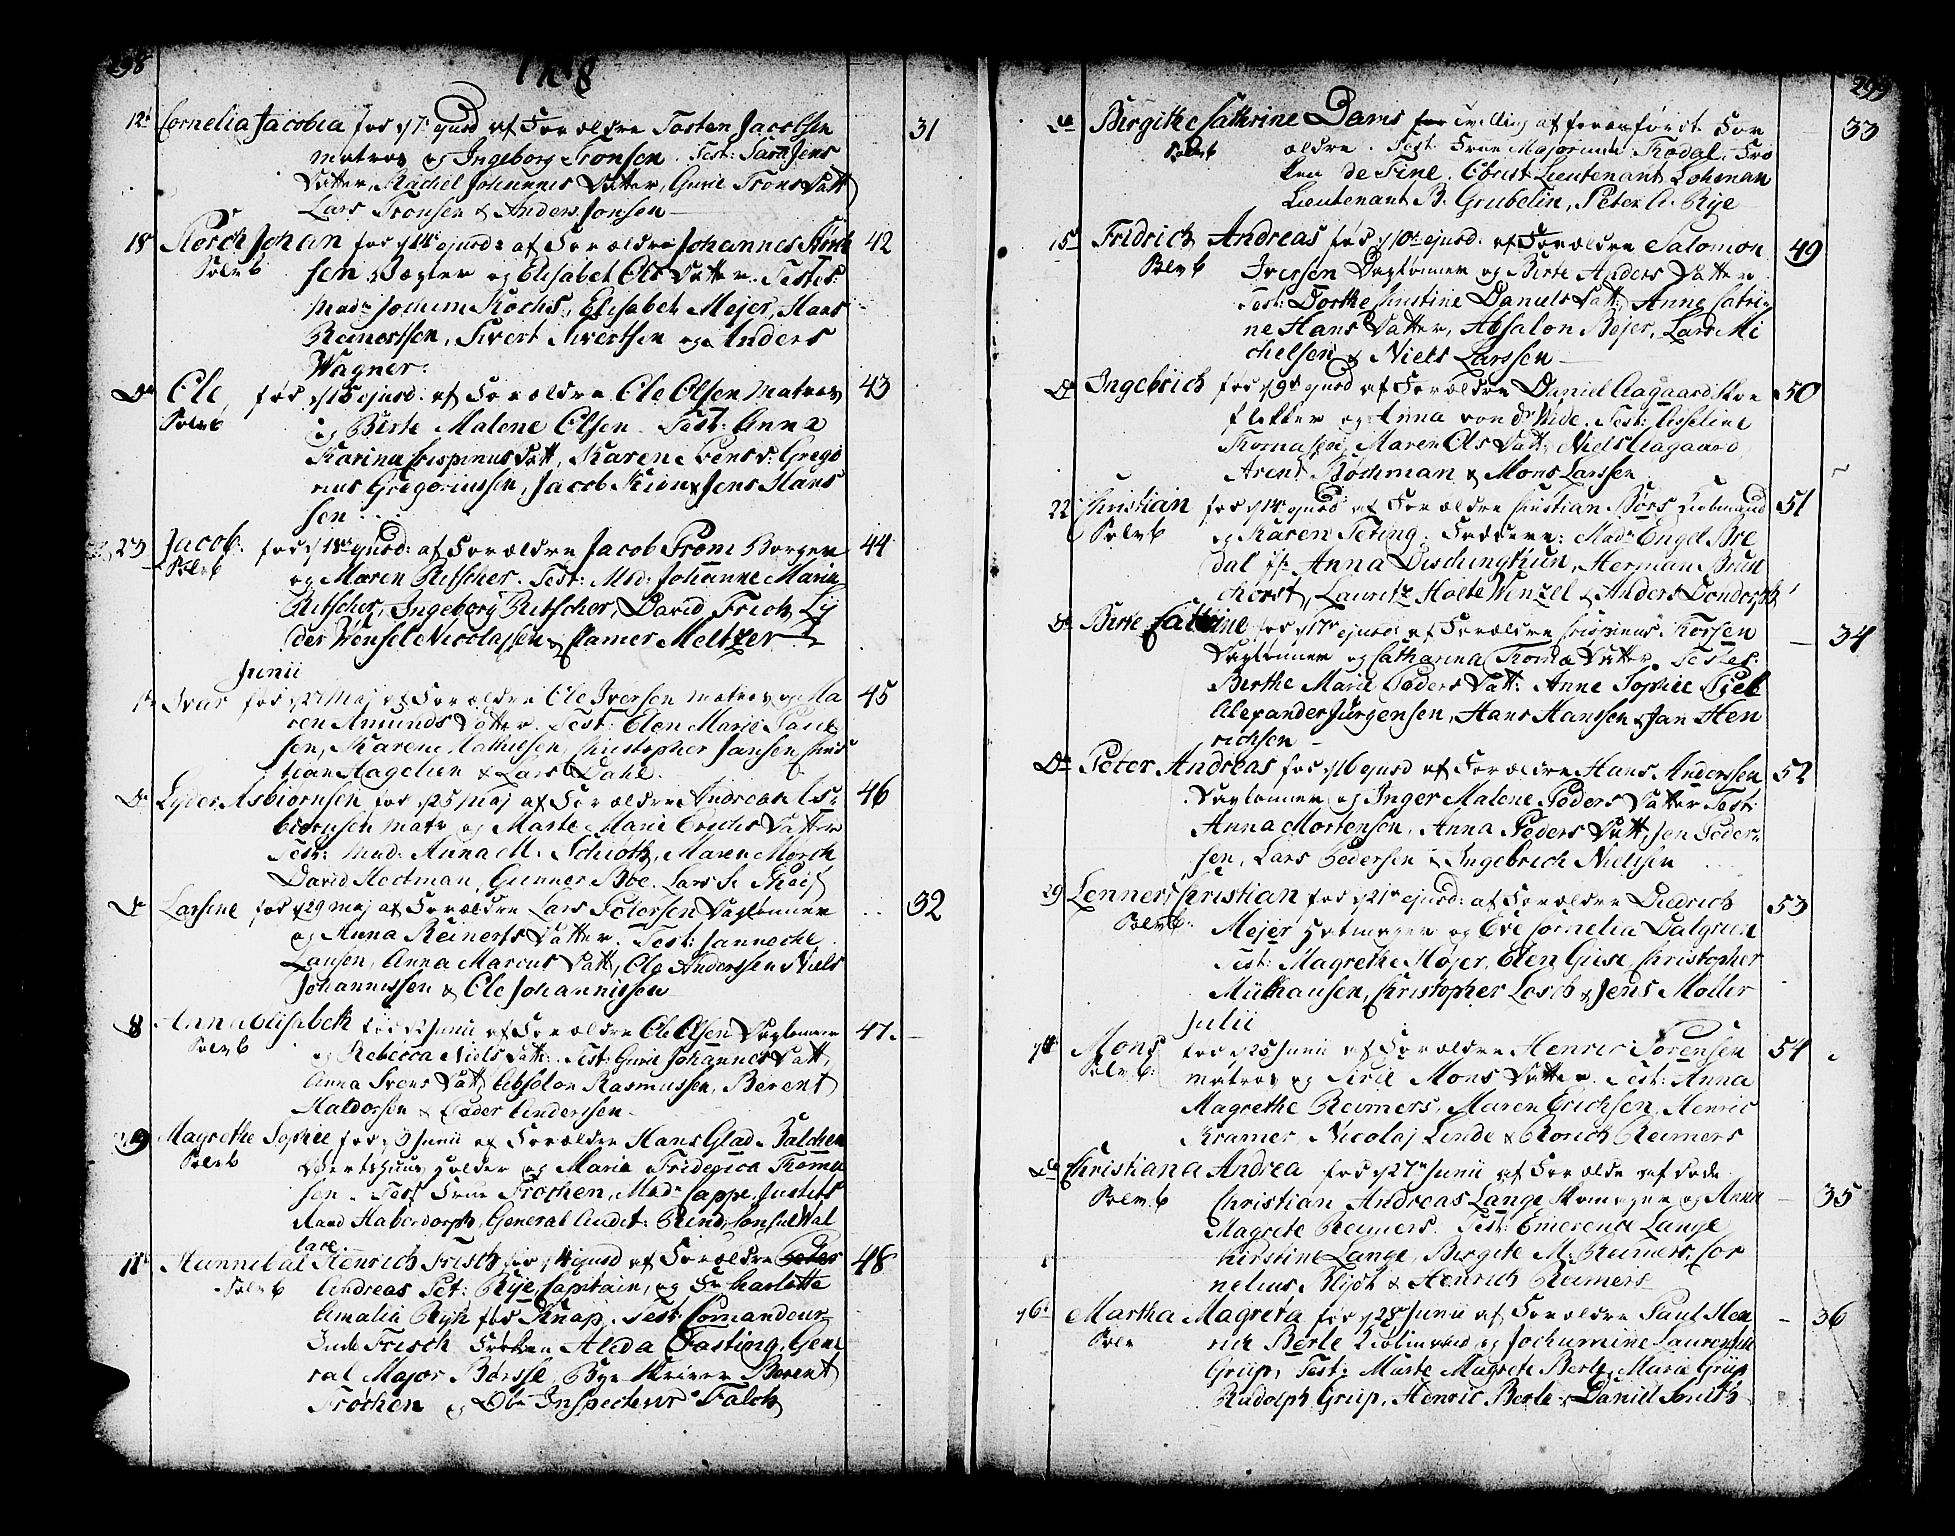 298
12t Cornelia Jacobia fød d 7 ejusd af Forældre Tosten Jacobsen 31
matros og Ingeborg Tronsen. Test: Sara Jens
Datter, Rachel Johannes Datter, Guril Trons Datt
Lars Tronsen & Anders Jonsen
18 Storch Johan fød ejusd: af Forældre Johannes Størk 42
Polvb sen og Elisabet Ols Datter. Testes:
Mad: Jochum Kochs, Elisabet Mejer, Hans
Reinertsen, Sivert Sivertsen og Anders
Wagner.
Do Ole fød d 15 ejusd: af Forældre Ole Olsen matros 43
Polvb og Birte Malene Olsen. Test: Anna
Karina Crispinus Datt, Karen Bens D: Grego
rius Gregoriussen, Jacob Kiøn & Jens Hans
sen
23 Jacob fød d 18 ejusd: af Forældre Jacob From Borger 44
Polvb og Maren Ritscher. Test: Mad: Johanne Marie
Ritscher, Ingeborg Ritscher, David Frich, Ly
der Wensel Nicolajsen & Clamer Meltzer
Junii
1 Ivar fød d 27 Maj af Forældre Ole Iversen matros og Ma 45
ren Amunds Datter. Test: Elen Marie Paul
sen, Karen Mathiesen, Christopher Jansen, Chris
tian Hagelien & Lars Dahl.
Do Lyder Asbiørnsen fød d 25 Maj af Forældre Andreas As- 46
biørnsen matr og Marte Marie Erichs Datter
Test: Mad: Anna M. Schiøth, Maren Mørch
David Heitman, Gunner Boe. Lars
Do Larsine fød d 29 Maj af Forældre Lars Petersen Daglønner 32
og Anna Reinerts Datter. Test: Janneche
Lausen, Anna Marcus Datt, Ole Anderssen Niels
Johannessen & Ole Johannissen
8 Anna Elisabeth fød d 2 Junii af Forældre Ole Olsen Daglønner 47.
Polvb og Rebecca Niels Datt. Test: Guril Johannes Datt,
Anna Svens Datt, Absolon Rasmussen, Berent
Haldorsen & Peder Andersen
9 Magrethe Sophie fød d 3 Junii af Forældre Hans Glad Balchen
Polvb Vertshuus holder og Maria Friderica Thoma
sen. Test Frue Frochen, Mad: Cappe, Justits
Raad Haberdorph, General Audit: Rind, Consul Wal
lace
11 Hannibal Henrich Frisch fød d 4 ejusd af Forældre Peter 48
Polvb Andreas Pet: Rije Capitain, og Fr. Charlotte
Amalia Rijh fød Knap. Test: Comandeur
Inde Frisch Frøken Aleda Fasting, Gene
ral Major Børsse, Bye Skriver Berent
Frøchen og Inspecteur Falch
299
Do Birgithe Cathrine Dams tvilling af foranførte For 33
Polvb ældre. Test Frue Majorinde Krodal, Frø
ken de Fine. Obrist Lieutenant Lohman
Lieutenant B. Grubelin, Peter A. Rye
15 Fridrich Andreas fød d 10 ejusd: af Forældre Salomon 49
Polvb Iversen Daglønner og Birte Anders Datter
Test: Dorthe Christine Daniels Datt: Anne Catri
ne Hans Datter, Absalon Bejer, Lars Mi
chelsen & Niels Larssen
Do Ingebrich fød d 9 ejusd af Forældre Daniel Aagaard Skoe 50
flikker og Anna von der Wide. Test: Asseline
Thomasen, Maren Ols Datt. Niels Aagaard
Arent Bochman & Mons Larssen
22 Christian fød d 14 ejusd af Forældre Christian Børs Kiøbmand 51
Polvb og Karen Teting. Faddere: Mad: Engel Bre
dal Anna Dischingthun, Herman Brun
chorst, Lauritz Holte Winzel & Anders Dondorph
Do Birte Cathrine fød d 17 ejusd: af Forældre Crispinus Thorsen 34
Daglønner og Catharina Thomæ Datter. Testes:
Berthe Marie Peders Datt: Anne Sophie
Alexander Jürgensen, Hans Hanssen & Jan Hen
richsen
Do Peter Andreas fød d 16 ejusd af Forældre Hans Anderssen 52
Dagløner og Inger Malene Peders Datter Test:
Anna Mortensen, Anna Peders Datt, Jen Peder-
sen, Lars Pedersen & Ingebrich Nielsen
29 Lenners Christian fød d 21 ejusd: af Forældre Diedrich 53
Polvb: Mejer Hatmager og Eve Cornelia Dalgrün
Test: Magrethe Højer, Elen Giese, Christopher
Mülhausen, Christopher Losch & Jens Møller
Julii
Mons fød d 25 Junii af Forældre Henric Sørensen 54
Polvb: matros og Siril Mons Datter. Test: Anna
Magrethe Reimers, Maren Erichsen, Henric
Kramer, Nicolaj Linde & Rorich Reimers
Do Christiana Andrea fød d 27 Junii af Forælde af døde
Polvb Christian Andreas Lange Skomager og Anna 35
Magrete Reimers. Test: Emerena Lange
Kirstine Lange, Birgite M: Reimers, Cor
nelius Blijdt & Henrich Reimers
6 Martha Magreta fød d 28 Junii af Forældre Paul Hen 36
Polv ric Berle Kiøbmand og Jochumine Laurentse
Grüp, Test: Marte Magrete Berle, Marie Grüp
Rudolph Grüp, Henric Berle & Daniel Smith